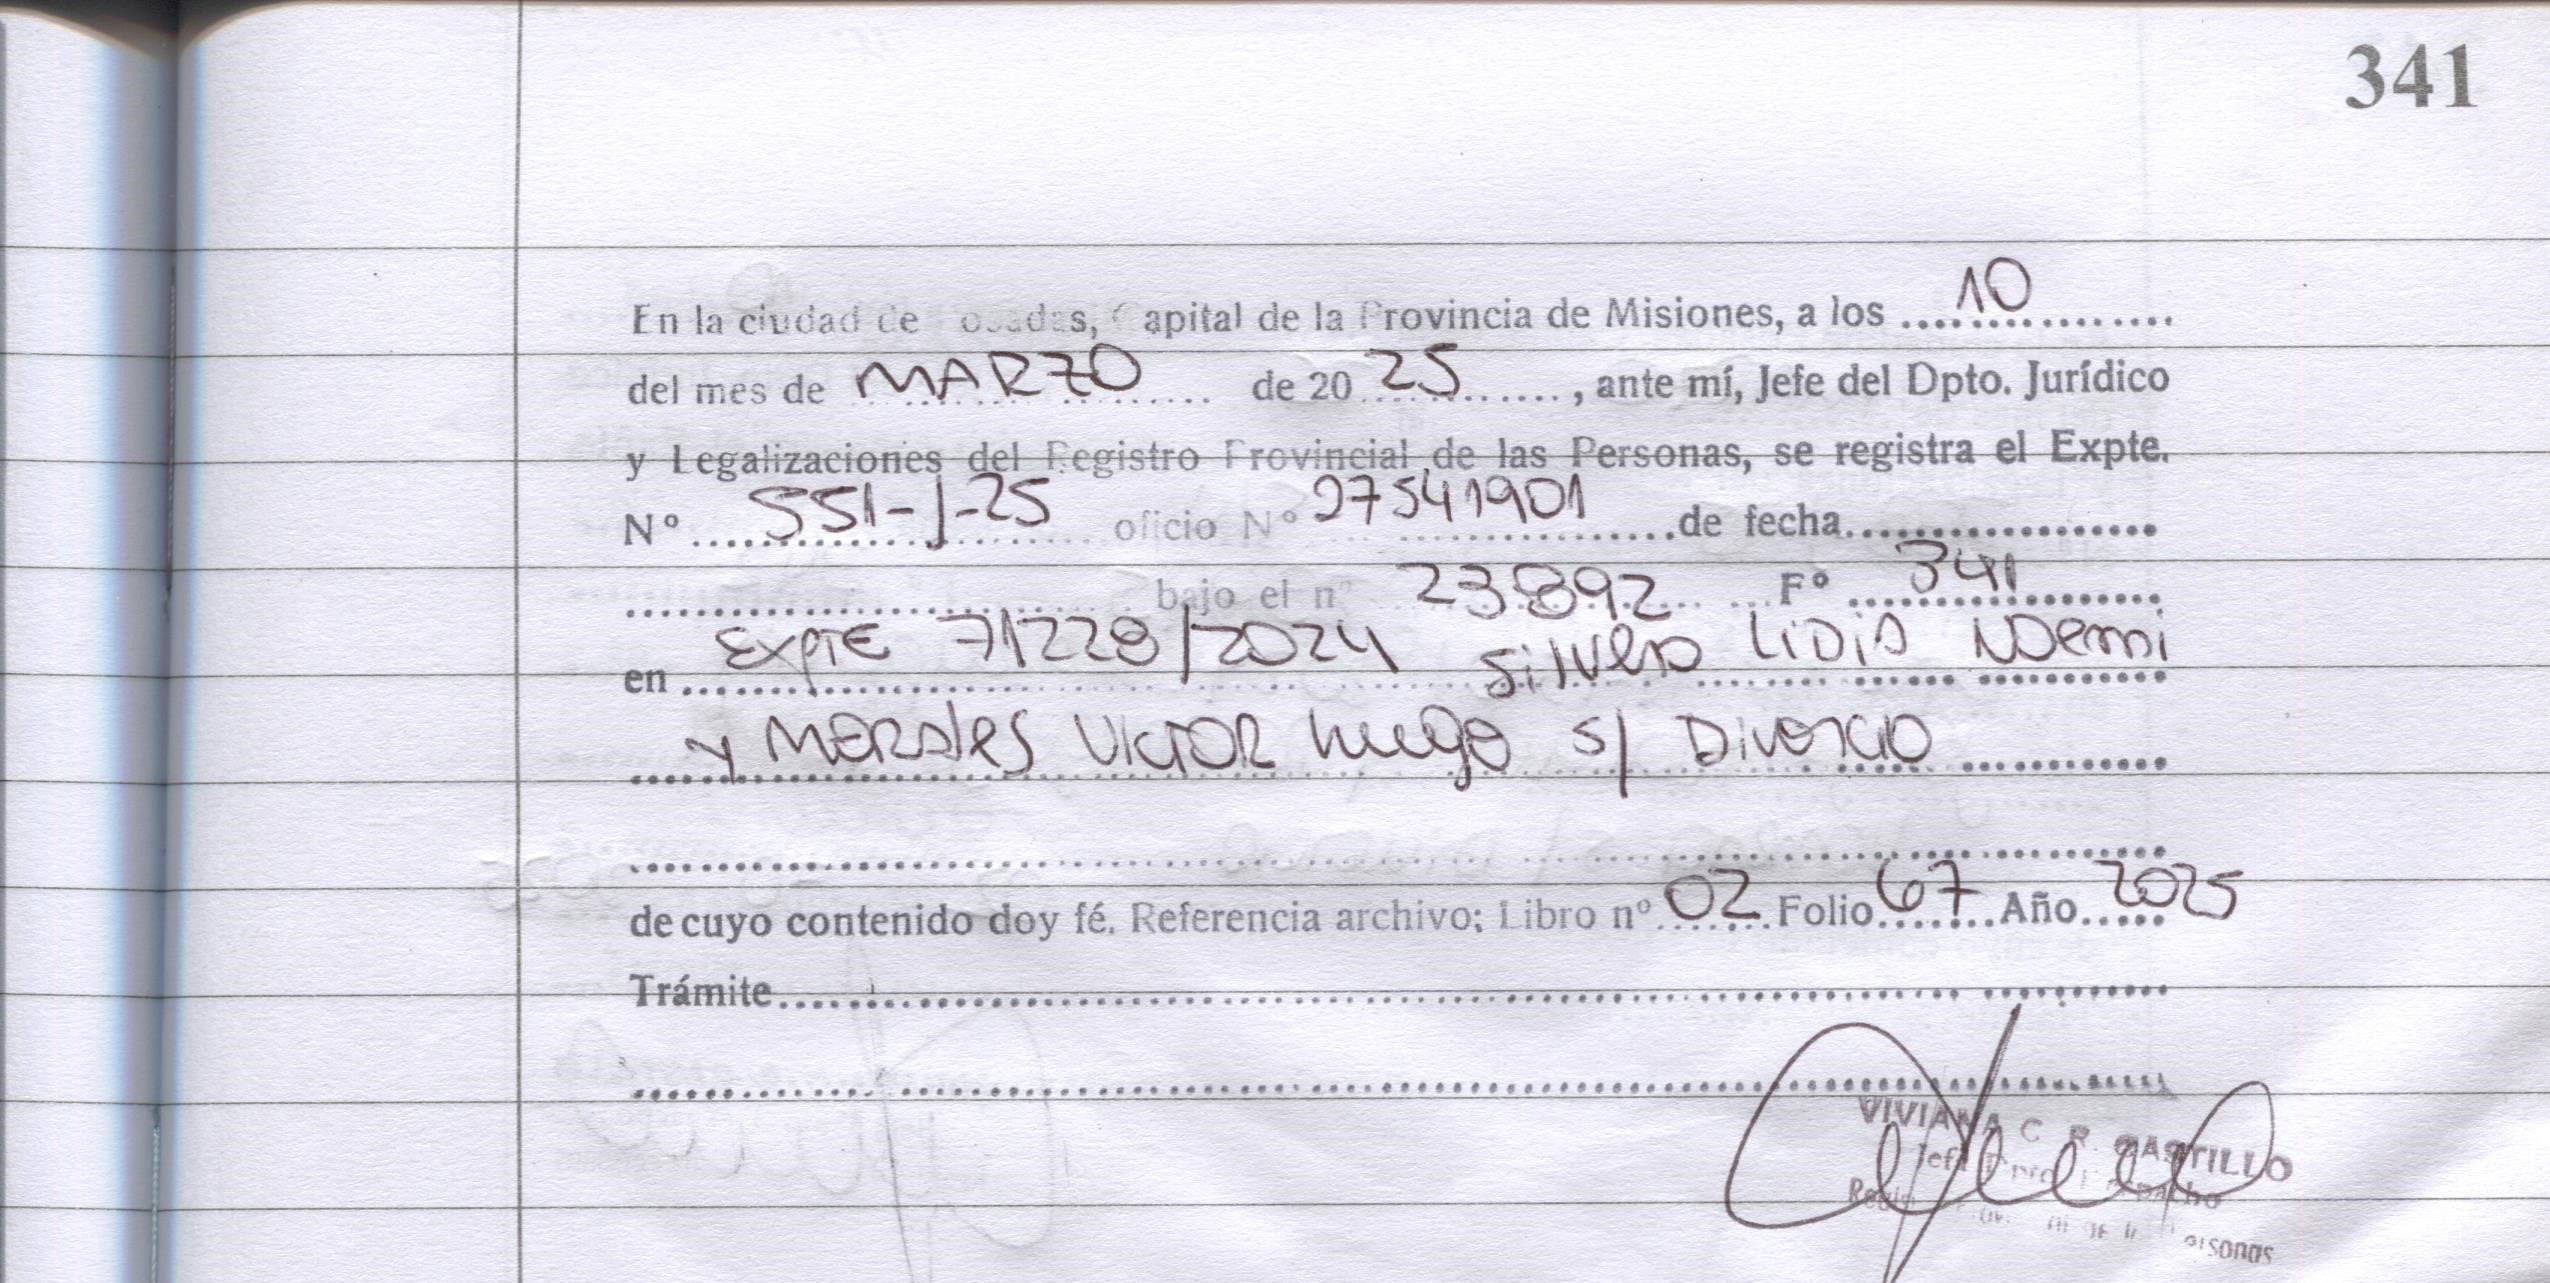 341
En la ciudad de Posadas, Capital de la Provincia de Misiones, a los 10
del mes de MARZO de 20 25, ante mí, Jefe del Dpto. Jurídico
y Legalizaciones del Registro Provincial de las Personas, se registra el Expte.
Nº 551-J-25 oficio Nº 27541901 de fecha
bajo el nº 23892 Fº 341
en EXPTE 71228/2024 Silvero Lidia Noemi
y MORALES VICTOR hugo s/ Divorcio
de cuyo contenido doy fé. Referencia archivo; Libro nº 02 Folio 67 Año 2025
Trámite
VIVIANA C. R. CASTILLO
Jefa Dpto. Despacho
Personas